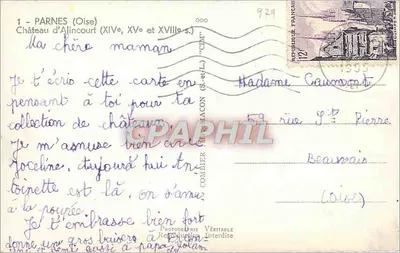 1 - PARNES (Oise)
Château d'Alincourt (XIVe, XVe et XVIIIe s.)
929
Ma chère maman
Je t'écris cette carte en
pensant à toi pour ta
collection de châteaux
Je m'amuse bien avec
Joceline, aujourd'hui An-
toinette est là, on s'amuse
à la poupée.
Je t'embrasse bien fort
donne un gros baiser à
aussi à papa
COMBIER MACON (S.-et-L.) "CIM"
REPUBLIQUE FRANÇAISE
12F
1955
Madame Caumont
59 rue St Pierre
Beauvais
(Oise)
CPARAMA
PHOTOGRAPHIE VÉRITABLE
Reproduction Interdite